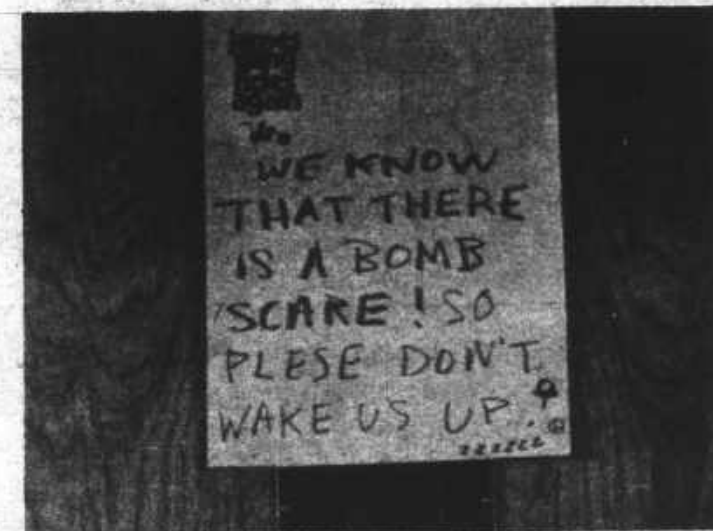 WE KNOW
THAT THERE
IS A BOMB
SCARE! SO
PLESE DON'T
WAKE US UP.
zzzzzz